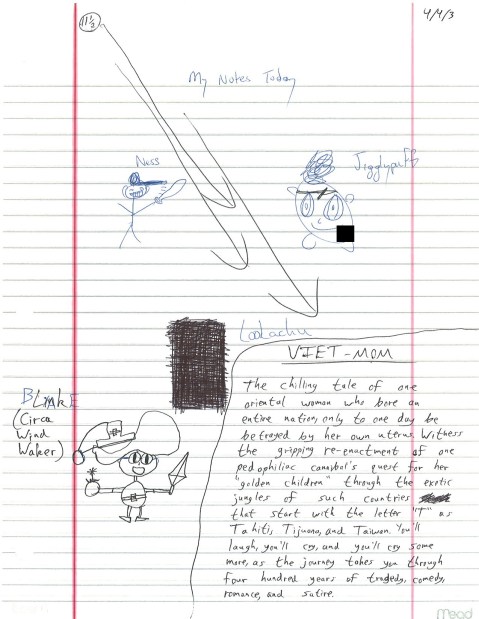 11 1/2
4/4/3
My Notes Today
Ness
Jigglypuff
Lookachu
VIET-MOM
The chilling tale of one
oriental woman who bore an
entire nation, only to one day be
betrayed by her own uterus. Witness
the gripping re-enactment of one
pedophiliac canabal's quest for her
"golden children" through the exotic
jungles of such countries
that start with the letter "T" as
Tahiti, Tijuana, and Taiwan. You'll
laugh, you'll cry, and you'll cry some
more, as the journey takes you through
four hundred years of tragedy, comedy,
romance, and satire.
(Circa
Wind
Waker)
mead